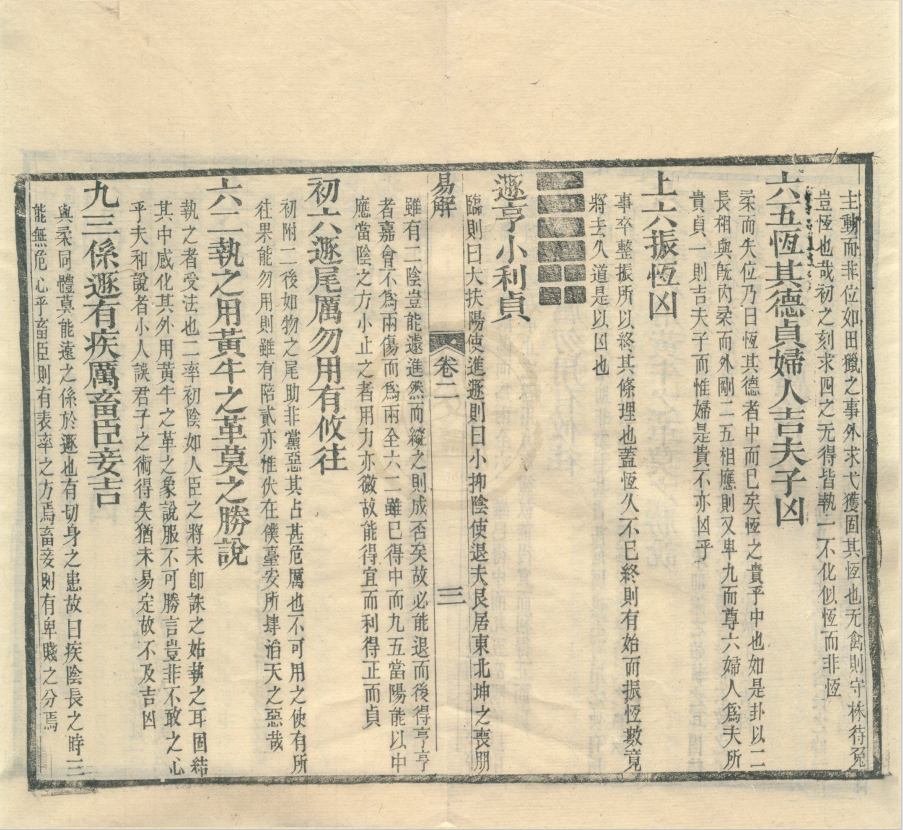 主動而非位如田獵之事外求弋獲固其恆也无禽則守株待兔
豈恆也哉初之刻求四之无得皆執一不化似恆而非恆
六五恆其德貞婦人吉夫子凶
柔而失位乃曰恆其德者中而已矣恆之貴乎中也如是卦以二
長相與旣內柔而外剛二五相應則又卑九而尊六婦人爲夫所
貴貞一則吉夫子而惟婦是貴不亦凶乎
上六振恆凶
事卒整振所以終其條理也蓋恆久不已終則有始而振恆數竟
將去久道是以凶也
遯亨小利貞
臨則曰大扶陽使進遯則曰小抑陰使退夫艮居東北坤之喪朋
易解
卷二
三
雖有二陰豈能遽進然而縱之則成否矣故必能退而後得亨亨
者嘉會不爲兩傷而爲兩至六二雖已得中而九五當陽能以中
應當陰之方小止之者用力亦微故能得宜而利得正而貞
初六遯尾厲勿用有攸往
初附二後如物之尾助非黨惡其占甚危厲也不可用之使有所
往果能勿用則雖有陪貳亦惟伏在僕臺安所肆滔天之惡哉
六二執之用黃牛之革莫之勝說
執之者受法也二率初陰如人臣之將未卽誅之姑執之耳固結
其中感化其外用黃牛之革之象說服不可勝言豈非不敢之心
乎夫和說者小人誤君子之術得失猶未易定故不及吉凶
九三係遯有疾厲畜臣妾吉
與柔同體莫能遠之係於遯也有切身之患故曰疾陰長之時三
能無危心乎畜臣則有表率之方焉畜妾則有卑賤之分焉